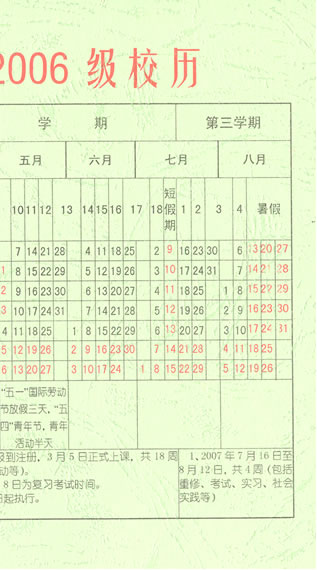 2006 级校历
学 期 第三学期
五月 六月 七月 八月
10 11 12 13 14 15 16 17 18 短假期 1 2 3 4 暑假
7 14 21 28 4 11 18 25 2 9 16 23 30 6 13 20 27
1 8 15 22 29 5 12 19 26 3 10 17 24 31 7 14 21 28
2 9 16 23 30 6 13 20 27 4 11 18 25 1 8 15 22 29
3 10 17 24 31 7 14 21 28 5 12 19 26 2 9 16 23 30
4 11 18 25 1 8 15 22 29 6 13 20 27 3 10 17 24 31
5 12 19 26 2 9 16 23 30 7 14 21 28 4 11 18 25
6 13 20 27 3 10 17 24 1 8 15 22 29 5 12 19 26
“五一”国际劳动
节放假三天，“五
四”青年节，青年
活动半天
到注册，3 月 5 日正式上课，共 18 周
动等)。
8 日为复习考试时间。
日起执行。
1、2007 年 7 月 16 日至
8 月 12 日，共 4 周（包括
重修、考试、实习、社会
实践等）